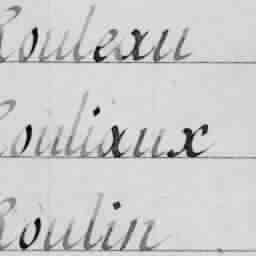 Rouleau
Rouliaux
Roulin